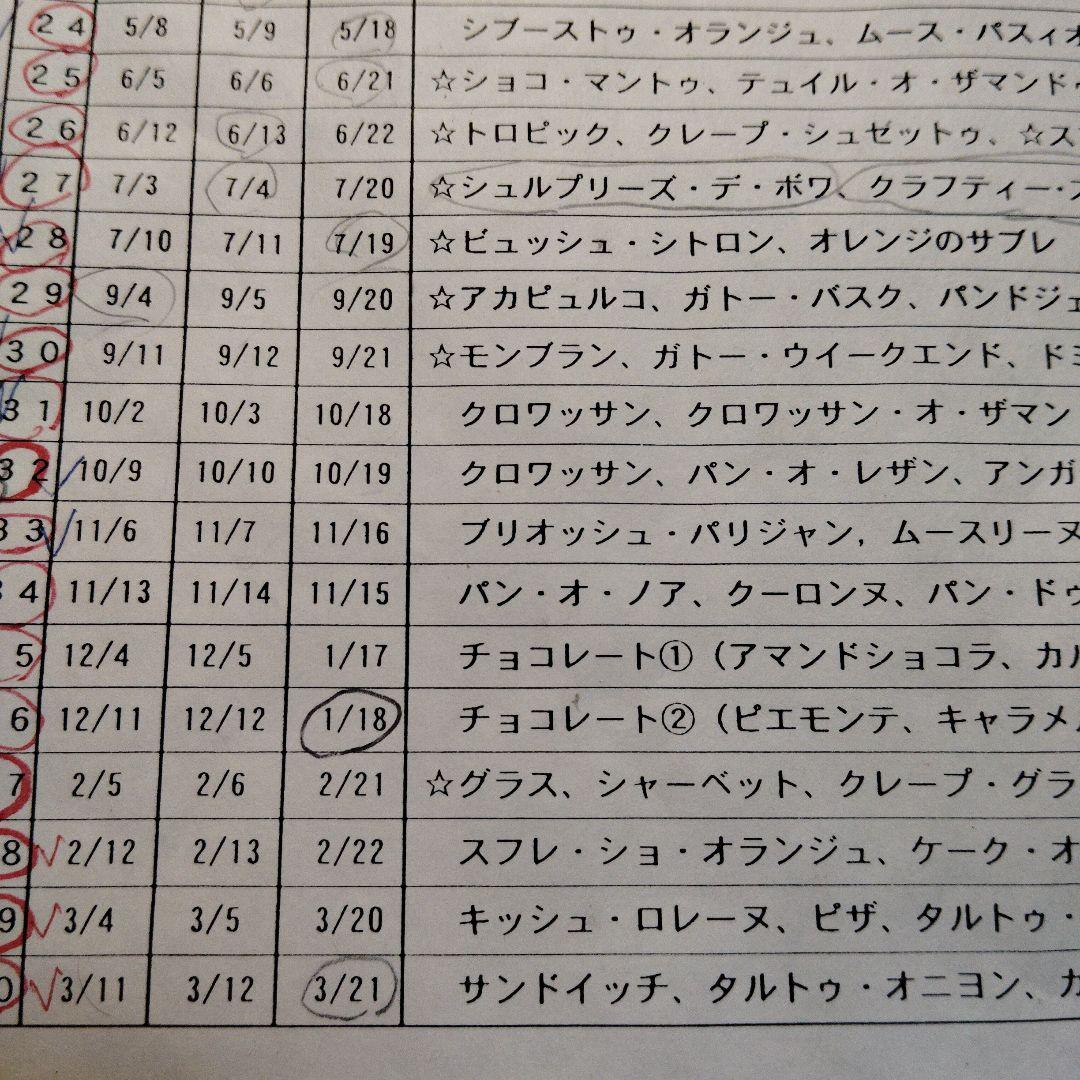 24 5/8 5/9 5/18 シブーストゥ・オランジュ、ムース・パスィオ
25 6/5 6/6 6/21 ☆ショコ・マントゥ、テュイル・オ・ザマンドゥ
26 6/12 6/13 6/22 ☆トロピック、クレープ・シュゼットゥ、☆ス
27 7/3 7/4 7/20 ☆シュルプリーズ・デ・ボワ、クラフティー・
28 7/10 7/11 7/19 ☆ビュッシュ・シトロン、オレンジのサブレ
29 9/4 9/5 9/20 ☆アカピュルコ、ガトー・バスク、パンドジェ
30 9/11 9/12 9/21 ☆モンブラン、ガトー・ウイークエンド、ドミ
31 10/2 10/3 10/18 クロワッサン、クロワッサン・オ・ザマン
32 10/9 10/10 10/19 クロワッサン、パン・オ・レザン、アンガ
33 11/6 11/7 11/16 ブリオッシュ・パリジャン,ムースリーヌ
4 11/13 11/14 11/15 パン・オ・ノア、クーロンヌ、パン・ドゥ
5 12/4 12/5 1/17 チョコレート①（アマンドショコラ、カル
6 12/11 12/12 1/18 チョコレート②（ピエモンテ、キャラメ
7 2/5 2/6 2/21 ☆グラス、シャーベット、クレープ・グラ
8 2/12 2/13 2/22 スフレ・ショ・オランジュ、ケーク・オ
9 3/4 3/5 3/20 キッシュ・ロレーヌ、ピザ、タルトゥ・
0 3/11 3/12 3/21 サンドイッチ、タルトゥ・オニヨン、カ